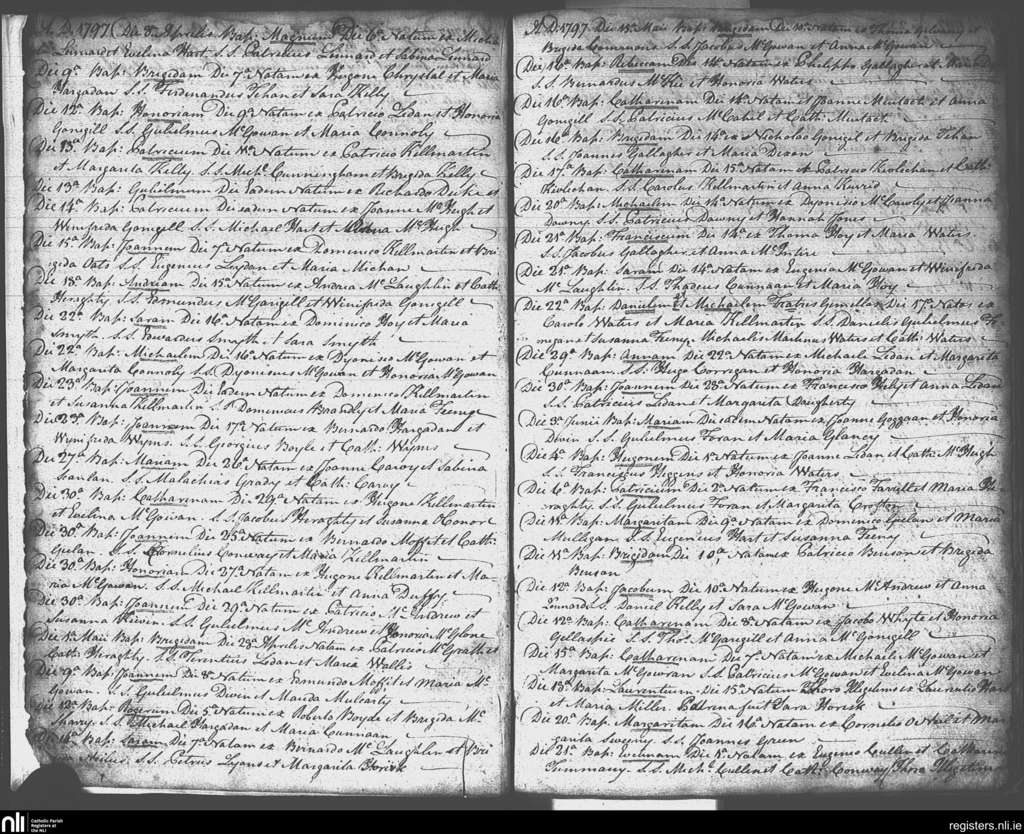 A.D. 1797 Die 8a Aprilis Bap: Magnum Die 6a Natum ex Micha
Linnard et Evelina Hart S.S. Patricius Linnard et Sabina Linnard
Die 9a Bap: Brigidam Die 7a Natam ex Hugone Chrystal et Maria
Hargadan S.S. Ferdinandus Fehan et Sara Kelly
Die 12a Bap: Honoriam Die 9a Natam ex Patricio Ledan et Honoria
Gonigill S.S. Gulielmus McGowan et Maria Connoly
Die 13a Bap: Patricium Die Natum ex Patricio Killmartin
et Margarita Kelly. S.S. Mich: Cunningham et Brigida Kelly
Die 13a Bap: Gulielmum Die Eadem Natum ex Richardo Duke et
Die 14a Bap: Patricium Die eadem Natum ex Joanne McHugh et
Winifrida Gonigill S.S. Michael Hart et McHugh
Die 15a Bap: Joannem Die 7a Natum ex Domenico Killmartin et Bri
gida Oats S.S. Eugenius Leydan et Maria Michan
Die 18a Bap: Andream Die 15a Natum ex Andrea McLaughlin et Cath:
Heraghty S.S. Edmundus McGarigill et Winifrida Gonigill
Die 22a Bap: Saram Die 16a Natam ex Domenico Hoy et Maria
Smyth. S.S. Edwardus Smyth et Sara Smyth
Die 22a Bap: Michaelem Die 16a Natum ex Dyonicio McGowan et
Margarita Connoly S.S. Dyonicius McGowan et Honoria McGowan
Die 23a Bap: Joannem Die Eadem Natum ex Domenico Killmartin
et Susanna Killmartin S.S. Domenicus Breardly et Maria Feeny
Die 23a Bap: Joannem Die 17a Natum ex Bernardo Hargadan et
Wynifrida Wyms. S.S. Georgius Boyle et Cath: Wyms
Die 27a Bap: Mariam Die 26a Natam ex Joanne Carvy et Sabina
Scanlan. S.S. Malachias Grady et Cath: Carvy
Die 30a Bap: Catharinam Die 29a Natam ex Hugone Killmartin
et Evelina McGowan. S.S. Jacobus Heraghty et Susanna Conor
Die 30a Bap: Joannem Die 25a Natum ex Bernardo Moffit et Cath:
Guilan. S.S. Cornelius Conway et Maria Killmartin
Die 30a Bap: Honoriam Die 27a Natam ex Hugone Killmartin et Ma
ria McGowan. S.S. Michael Killmartin et Anna Duffy
Die 30a Bap: Joannem Die 29a Natum ex Patricio McAndrew et
Susanna S.S. Gulielmus McAndrew et Honoria McGlone
Die 1a Maii Bap: Brigidam Die 28a Aprilis Natam ex Patricio McGrath et
Cath: Heraghty. S.S. Terentius Ledan et Maria Wallis
Die 9a Bap: Joannem Die 8a Natum ex Edmundo Moffit et Maria Mc
Gowan. S. Gulielmus Divin et Mauda Mulearty
Die 12a Bap: Rogerum Die 5a Natum ex Roberto Boyde et Brigida Mc
Sharry. S.S. Michael Hargadan et Maria Cunnoan
Die 14a Bap: Die 7a Natum ex Bernardo McLaughlin et Bri
S.S. Petrus Lyons et Margarita Horisk
A.D. 1797 Die 15a Maii Bap: Brigidam Die 10a Natam ex Thoma Gilvany et
Brigida S.S. Jacobus McGowan et Anna McGowan
Die 16a Bap: Rebeccam Die 14a Natam ex Philippo Gallagher et
S.S. Bernardus McKie et Honoria Waters
Die 16a Bap: Catharinam Die 14a Natam ex Joanne Meulact et Anna
Gonigill S.S. Patricius McCahil et Cath: Meulact
Die 16a Bap: Brigidam Die 14a ex Nicholao Gonigil et Brigida Fehan
S.S. Joannes Gallagher et Maria Dixon
Die 17a Bap: Catharinam Die 15a Natam ex Patricio Keolichan et Cath:
Keolichan S.S. Carolus Killmartin et Anna
Die 20a Bap: Michaelem Die 14a Natum ex Dyonicio McCawly et Joanna
Downy S.S. Patricius Downy et Hannah Jones
Die 21a Bap: Franciscum Die 14a ex Thoma Hoy et Maria Waters
S.S. Jacobus Gallagher et Anna McIntire
Die 21a Bap: Saram Die 14a Natam ex Eugenio McGowan et Winifrida
McLaughlin. S.S. Thadeus Cunnoan et Maria Hoy
Die 22a Bap: Danielem et Michaelem Fratres Gemellos Die 17a Natos ex
Carolo Waters et Maria Killmartin S.S. Danielis Gulielmus Fi
migan et Susanna Feeny. Michaelis Mathæus Waters et Cath: Waters
Die 29a Bap: Annam Die 22a Natam ex Michaele Ledan et Margarita
Cunnoan. S.S. Hugo Corrigan et Honoria Hargadan
Die 30a Bap: Joannem Die 23a Natum ex Francisco Kelly et Anna Ledan
S.S. Patricius Ledan et Margarita Daugherty
Die 3a Junii Bap: Mariam Die eadem Natam ex Joanne Goggan et Honoria
Divin S.S. Gulielmus Foran et Maria Glancy
Die 4a Bap: Hugonem Die 1a Natum ex Joanne Ledan et Cath: McHugh
S.S. Franciscus Higgins et Honoria Waters
Die 6a Bap: Patricium Die 2a Natum ex Francisco Farrell et Maria He
raghty S.S. Gulielmus Foran et Margarita Crofton
Die 11a Bap: Margaritam Die 9a Natam ex Domenico Guilan et Maria
Mulligan S.S. Eugenius Hart et Susanna Feeny
Die 11a Bap: Brigidam Die 10a, Natam ex Patricio Beuson et Brigida
Beuson
Die 12a Bap: Jacobum Die 10a Natum ex Hugone McAndrew et Anna
Linnard S. Daniel Kelly et Sara McGowan
Die 12a Bap: Catharinam Die 8a Natam ex Jacobo Whyte et Honoria
Gillaspie S.S. Thos. McGarigill et Anna McGonigill
Die 15a Bap: Catharinam Die 7a Natam ex Michaele McGowan et
Margarita McGowran S.S. Patricius McGowan et Evelina McGowan
Die 18a Bap: Laurentium Die 15a Natum Thoro Illegitimo ex Laurentio Hart
et Maria Miller. Patrina fuit Sara Horisk
Die 20a Bap: Margaritam Die 16a Natam ex Cornelio O Neil et Mar
garita Sweeny. S.S. Joannes Green
Die 21a Bap: Die 1a Natam ex Eugenio Cullen et Catharina
Timmany S.S. Mich: Cullen et Cath: Conway Thoro Illegitimo
nli
Catholic Parish
Registers at
the NLI
registers.nli.ie